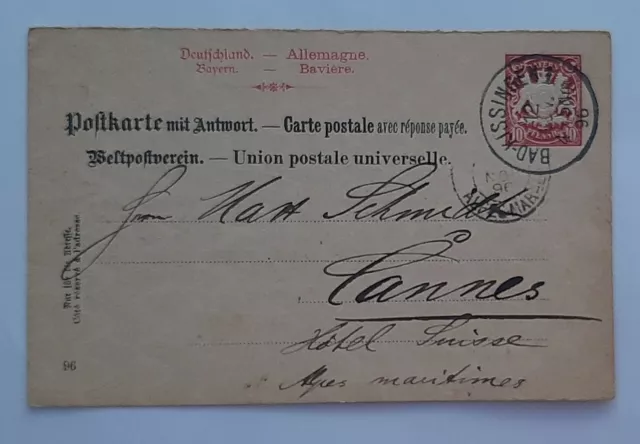 Deutschland. — Allemagne.
Bayern. — Bavière.
Postkarte mit Antwort. — Carte postale avec réponse payée.
Weltpostverein. — Union postale universelle.
BAD-KISSINGEN
96
10
10
Herrn Matt Schmidt
Cannes
Hôtel Suisse
Alpes maritimes
Nur für die Adresse.
Côté réservé à l'adresse.
96